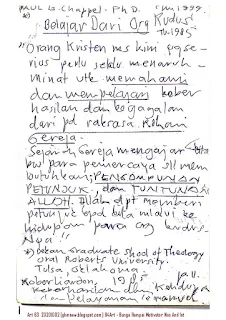 PAUL G. Chappel. Ph D.
Belajar Dari Org Kudus²
th. 1985
"Orang Kristen ms kini yg se-
rius perlu selalu menaruh
minat utk memahami
dan mempelajari keber
hasilan dan kegagalan
dari pd raksasa Rohani
Gereja.
Sejarah Gereja mengajar kita
bw para pemercaya sll mem
butuhkan PENGAMPUNAN
PETUNJUK, dan TUNTUNAN
ALLOH. Allah dpt memberi
petunjuk kpad kita melalui ke
hidupan para org kudus
Nya"
Dekan Graduate School of Theology
Oral Roberts University.
Tulsa, Oklahoma.
Roberliardon, 1985
Keberhasilan dan
dan pelayanan
Art 83 23203002 (gkmnew.blogspot.com) 84Art - Bunga Rampai Motivator Nas And Int